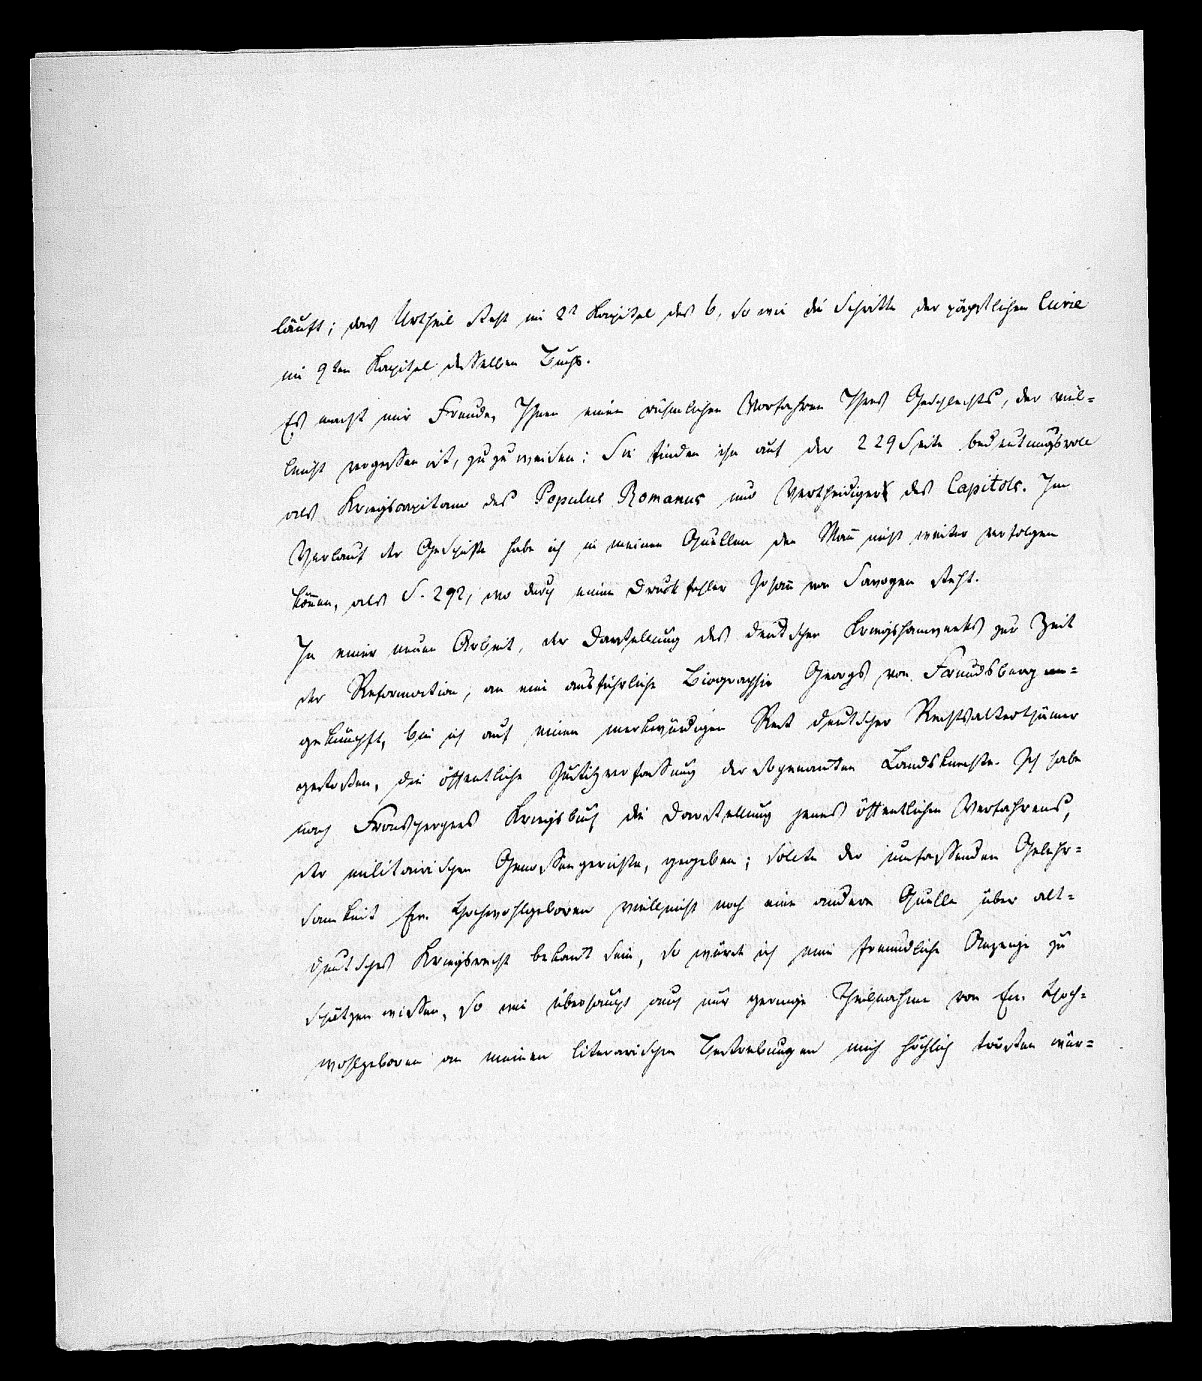 läuft; das Urtheil steht im 2t Kapitel des 6. so wie die Schritte der päpstlichen Curie
im 9ten Kapitel desselben Buchs.
Es macht mir Freude, Ihnen einen rühmlichen Vorfahren Ihres Geschlechts, der viel=
leicht vergessen ist, zuzuweisen: Sie finden ihn auf der 229 Seite bedeutungsvoll
als Kriegscapitano des Populus Romanus und Vertheidiger des Capitols. Im
Verlauf der Geschichte habe ich in meinen Quellen den Mann nicht weiter verfolgen
können, als S. 292, wo durch einen Druckfehler Johann von Savogen steht.
In einer neuen Arbeit, der Darstellung des deutschen Kriegshandwerks zur Zeit
der Reformation, an eine ausführliche Biographie Georgs von Frundsberg an=
geknüpft, bin ich auf einen merkwürdigen Rest deutscher Rechtsalterthümer
gestoßen, die öffentliche Justizverfassung der sogenannten Landsknechte. Ich habe
nach Fronspergers Kriegsbuch die Darstellung jenes öffentlichen Verfahrens,
der militairischen Genossengerichte, gegeben; sollte der umfassenden Gelehr=
samkeit Ew. Hochwohlgeboren vielleicht noch eine andere Quelle über alt=
deutsches Kriegsrecht bekannt sein, so würde ich eine freundliche Anzeige zu
schätzen wissen, so wie überhaupt auch nur geringe Theilnahme von Ew. Hoch=
wohlgeboren an meinen literarischen Bestrebungen mich höchlich trösten wür=